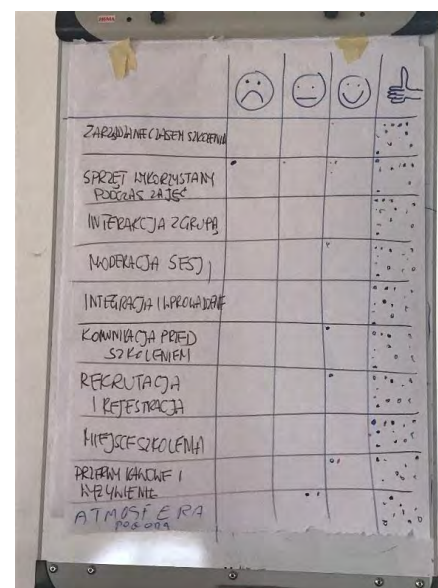 ZARZĄDZANIE CZASEM SZKOLENIA
SPRZĘT WYKORZYSTANY
PODCZAS ZAJĘĆ
INTERAKCJA Z GRUPĄ
MODERACJA SESJI
INTEGRACJA I WPROWADZENIE
KOMUNIKACJA PRZED
SZKOLENIEM
REKRUTACJA
I REJESTRACJA
MIEJSCE SZKOLENIA
PRZERWY KAWOWE I
WYŻYWIENIE
ATMOSFERA
POGODA